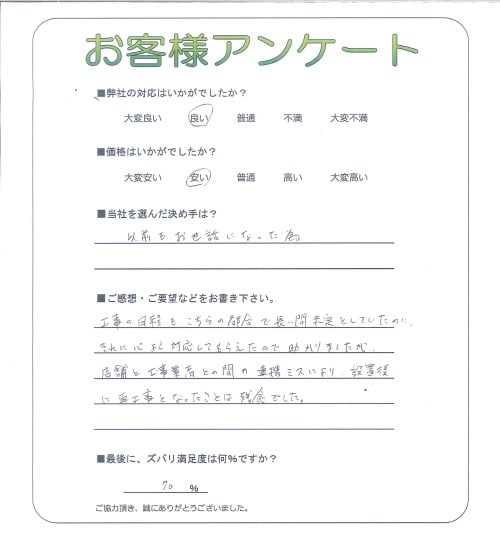 お客様アンケート
■弊社の対応はいかがでしたか？
大変良い 良い 普通 不満 大変不満
■価格はいかがでしたか？
大変安い 安い 普通 高い 大変高い
■当社を選んだ決め手は？
以前もお世話になった為
■ご感想・ご要望などをお書き下さい。
工事の日程をこちらの都合で長い間未定としていたのに、
それに心よく対応してもらえたので助かりましたが、
店舗と工事業者との間の連携ミスにより、設置後
に再工事となったことは残念でした。
■最後に、ズバリ満足度は何%ですか？
70 %
ご協力頂き、誠にありがとうございました。